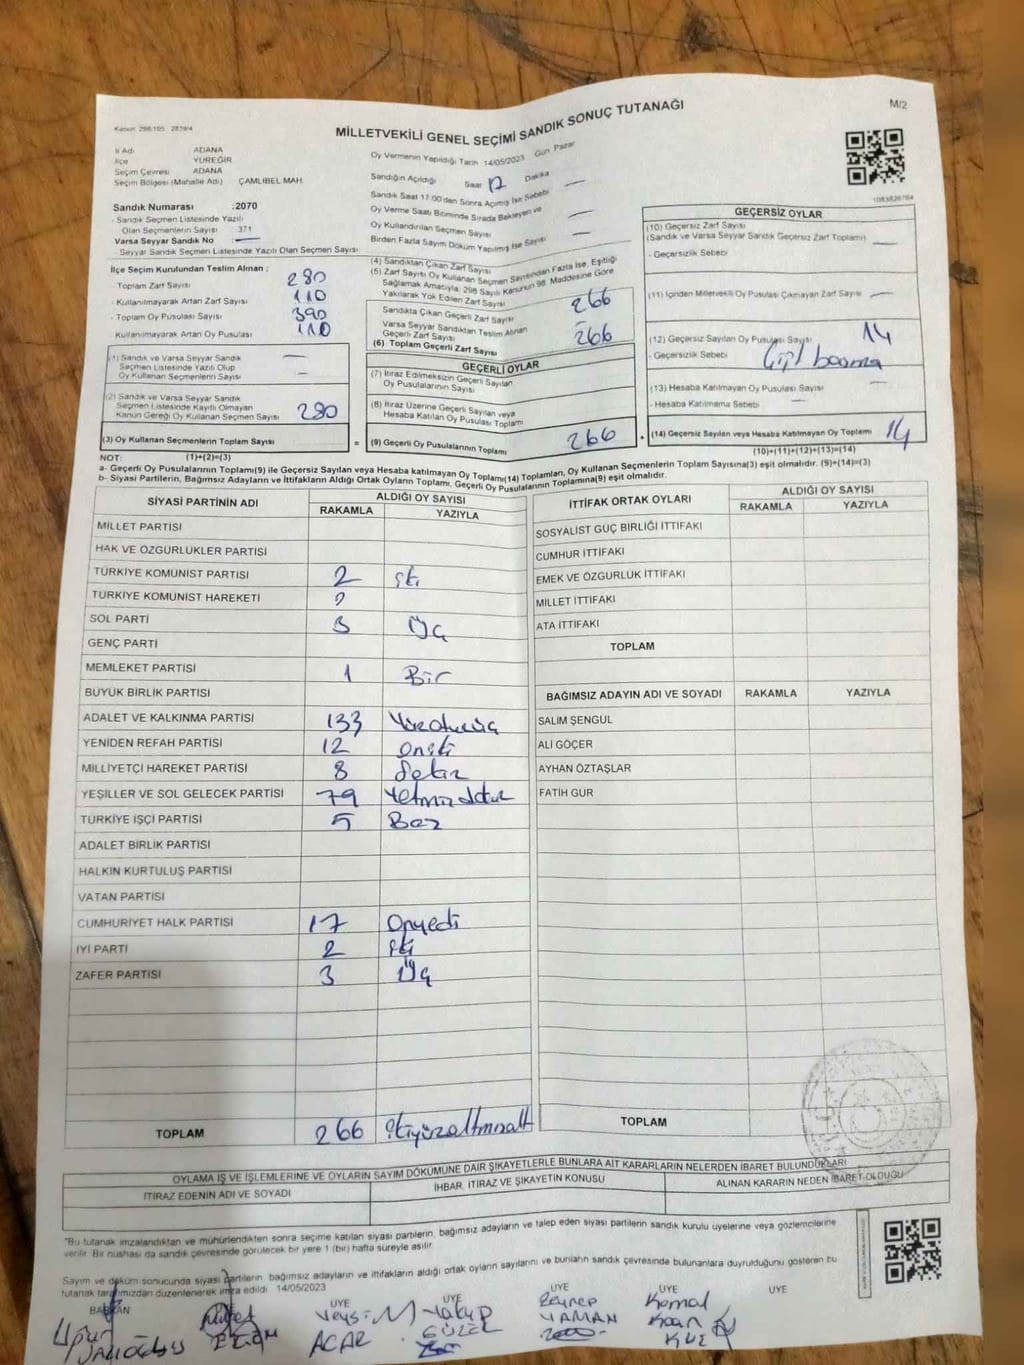 Kanun 298/105 2839/4
MİLLETVEKİLİ GENEL SEÇİMİ SANDIK SONUÇ TUTANAĞI
M/2
İl Adı ADANA
İlçe YÜREĞİR
Seçim Çevresi ADANA
Seçim Bölgesi (Mahalle Adı) ÇAMLIBEL MAH.
Oy Vermenin Yapıldığı Tarih 14/05/2023 Gün Pazar
Sandığın Açıldığı Saat 17 Dakika —
Sandık Saat 17:00'den Sonra Açılmış İse Sebebi —
Oy Verme Saati Bitiminde Sırada Bekleyen ve
Oy Kullandırılan Seçmen Sayısı —
Birden Fazla Sayım Döküm Yapılmış İse Sayısı —
Sandık Numarası :2070
- Sandık Seçmen Listesinde Yazılı
Olan Seçmenlerin Sayısı 371
Varsa Seyyar Sandık No —
- Seyyar Sandık Seçmen Listesinde Yazılı Olan Seçmen Sayısı
İlçe Seçim Kurulundan Teslim Alınan :
- Toplam Zarf Sayısı 280
- Kullanılmayarak Artan Zarf Sayısı 110
- Toplam Oy Pusulası Sayısı 390
Kullanılmayarak Artan Oy Pusulası 110
(1) Sandık ve Varsa Seyyar Sandık
Seçmen Listesinde Yazılı Olup
Oy Kullanan Seçmenlerin Sayısı —
(2) Sandık ve Varsa Seyyar Sandık
Seçmen Listesinde Kayıtlı Olmayan
Kanun Gereği Oy Kullanan Seçmen Sayısı 280
(3) Oy Kullanan Seçmenlerin Toplam Sayısı
(1)+(2)=(3)
(4) Sandıktan Çıkan Zarf Sayısı
(5) Zarf Sayısı Oy Kullanan Seçmen Sayısından Fazla İse, Eşitliği
Sağlamak Amacıyla, 298 Sayılı Kanunun 98. Maddesine Göre
Yakılarak Yok Edilen Zarf Sayısı
Sandıkta Çıkan Geçerli Zarf Sayısı 266
Varsa Seyyar Sandıktan Teslim Alınan
Geçerli Zarf Sayısı —
(6) Toplam Geçerli Zarf Sayısı 266
GEÇERLİ OYLAR
(7) İtiraz Edilmeksizin Geçerli Sayılan
Oy Pusulalarının Sayısı
(8) İtiraz Üzerine Geçerli Sayılan veya
Hesaba Katılan Oy Pusulası Toplamı
= (9) Geçerli Oy Pusulalarının Toplamı 266
GEÇERSİZ OYLAR
(10) Geçersiz Zarf Sayısı
(Sandık ve Varsa Seyyar Sandık Geçersiz Zarf Toplamı) —
- Geçersizlik Sebebi
(11) İçinden Milletvekili Oy Pusulası Çıkmayan Zarf Sayısı —
(12) Geçersiz Sayılan Oy Pusulası Sayısı 14
- Geçersizlik Sebebi
(13) Hesaba Katılmayan Oy Pusulası Sayısı —
- Hesaba Katılmama Sebebi —
+ (14) Geçersiz Sayılan veya Hesaba Katılmayan Oy Toplamı 14
(10)+(11)+(12)+(13)=(14)
NOT:
a- Geçerli Oy Pusulalarının Toplamı(9) ile Geçersiz Sayılan veya Hesaba katılmayan Oy Toplamı(14) Toplamları, Oy Kullanan Seçmenlerin Toplam Sayısına(3) eşit olmalıdır. (9)+(14)=(3)
b- Siyasi Partilerin, Bağımsız Adayların ve İttifakların Aldığı Oyların Toplamı, Geçerli Oy Pusulalarının Toplamına(9) eşit olmalıdır.
SİYASİ PARTİNİN ADI ALDIĞI OY SAYISI
RAKAMLA YAZIYLA
MİLLET PARTİSİ
HAK VE ÖZGÜRLÜKLER PARTİSİ
TÜRKİYE KOMÜNİST PARTİSİ 2 iki
TÜRKİYE KOMÜNİST HAREKETİ 2
SOL PARTİ 3 Üç
GENÇ PARTİ
MEMLEKET PARTİSİ 1 Bir
BÜYÜK BİRLİK PARTİSİ
ADALET VE KALKINMA PARTİSİ 133 Yüzotuzüç
YENİDEN REFAH PARTİSİ 12 Oniki
MİLLİYETÇİ HAREKET PARTİSİ 8 Sekiz
YEŞİLLER VE SOL GELECEK PARTİSİ 79 Yetmişdokuz
TÜRKİYE İŞÇİ PARTİSİ 5 Beş
ADALET BİRLİK PARTİSİ
HALKIN KURTULUŞ PARTİSİ
VATAN PARTİSİ
CUMHURİYET HALK PARTİSİ 17 Onyedi
İYİ PARTİ 2 iki
ZAFER PARTİSİ 3 Üç
TOPLAM 266 ikiyüzaltmışaltı
İTTİFAK ORTAK OYLARI ALDIĞI OY SAYISI
RAKAMLA YAZIYLA
SOSYALİST GÜÇ BİRLİĞİ İTTİFAKI
CUMHUR İTTİFAKI
EMEK VE ÖZGÜRLÜK İTTİFAKI
MİLLET İTTİFAKI
ATA İTTİFAKI
TOPLAM
BAĞIMSIZ ADAYIN ADI VE SOYADI RAKAMLA YAZIYLA
SALİM ŞENGÜL
ALİ GÖÇER
AYHAN ÖZTAŞLAR
FATİH GÜR
TOPLAM
OYLAMA İŞ VE İŞLEMLERİNE VE OYLARIN SAYIM DÖKÜMÜNE DAİR ŞİKAYETLERLE BUNLARA AİT KARARLARIN NELERDEN İBARET BULUNDUKLARI
İTİRAZ EDENİN ADI VE SOYADI İHBAR, İTİRAZ VE ŞİKAYETİN KONUSU ALINAN KARARIN NEDEN İBARET OLDUĞU
"Bu tutanak imzalandıktan ve mühürlendikten sonra seçime katılan siyasi partilerin, bağımsız adayların ve talep eden siyasi partilerin sandık kurulu üyelerine veya gözlemcilerine
verilir. Bir nüshası da sandık çevresinde görülecek bir yere 1 (bir) hafta süreyle asılır.
Sayım ve döküm sonucunda siyasi partilerin, bağımsız adayların ve ittifakların aldığı ortak oyların sayılarını ve bunların sandık çevresinde bulunanlara duyrulduğunu gösteren bu
tutanak tarafımızdan düzenlenerek imza edildi. 14/05/2023
BAŞKAN ÜYE ÜYE ÜYE ÜYE ÜYE
Veysi Yakup Zeynep Kemal
ACAR GÜZEL YAMAN